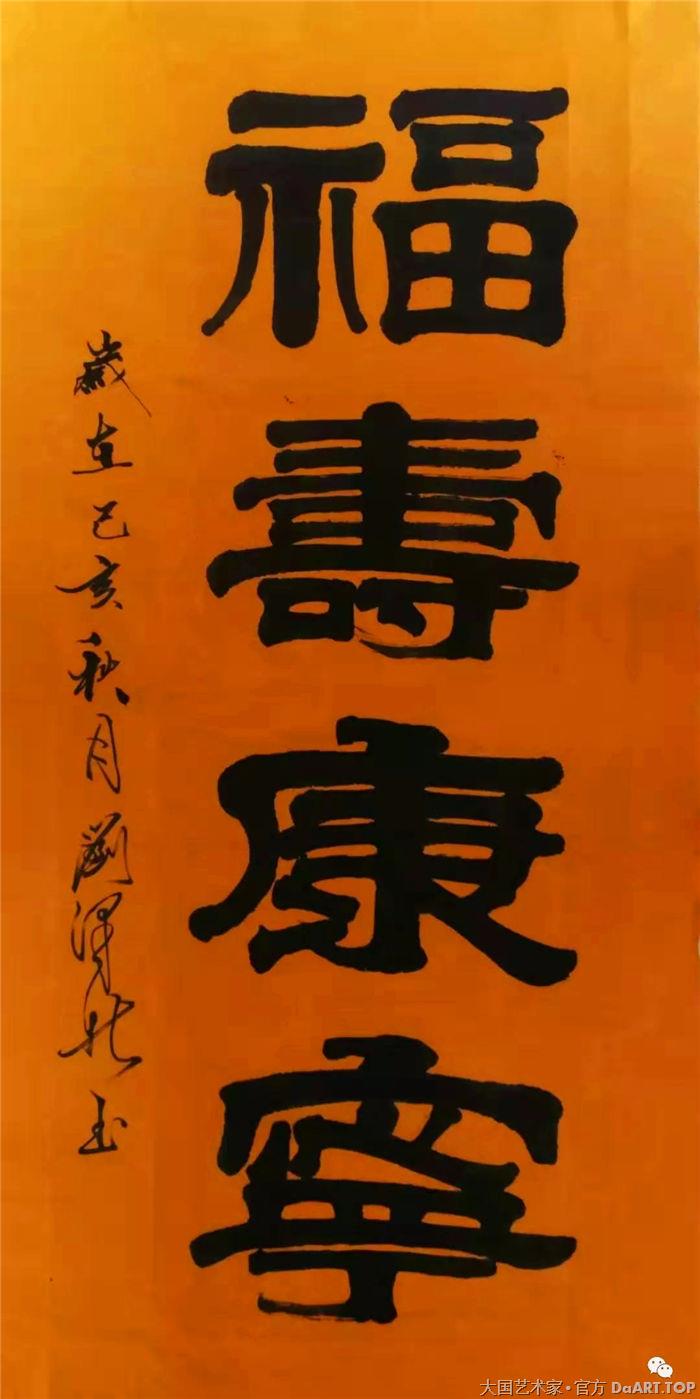 福壽康寧
歲在己亥秋月劉澤
大国艺术家·官方 DaART.TOP